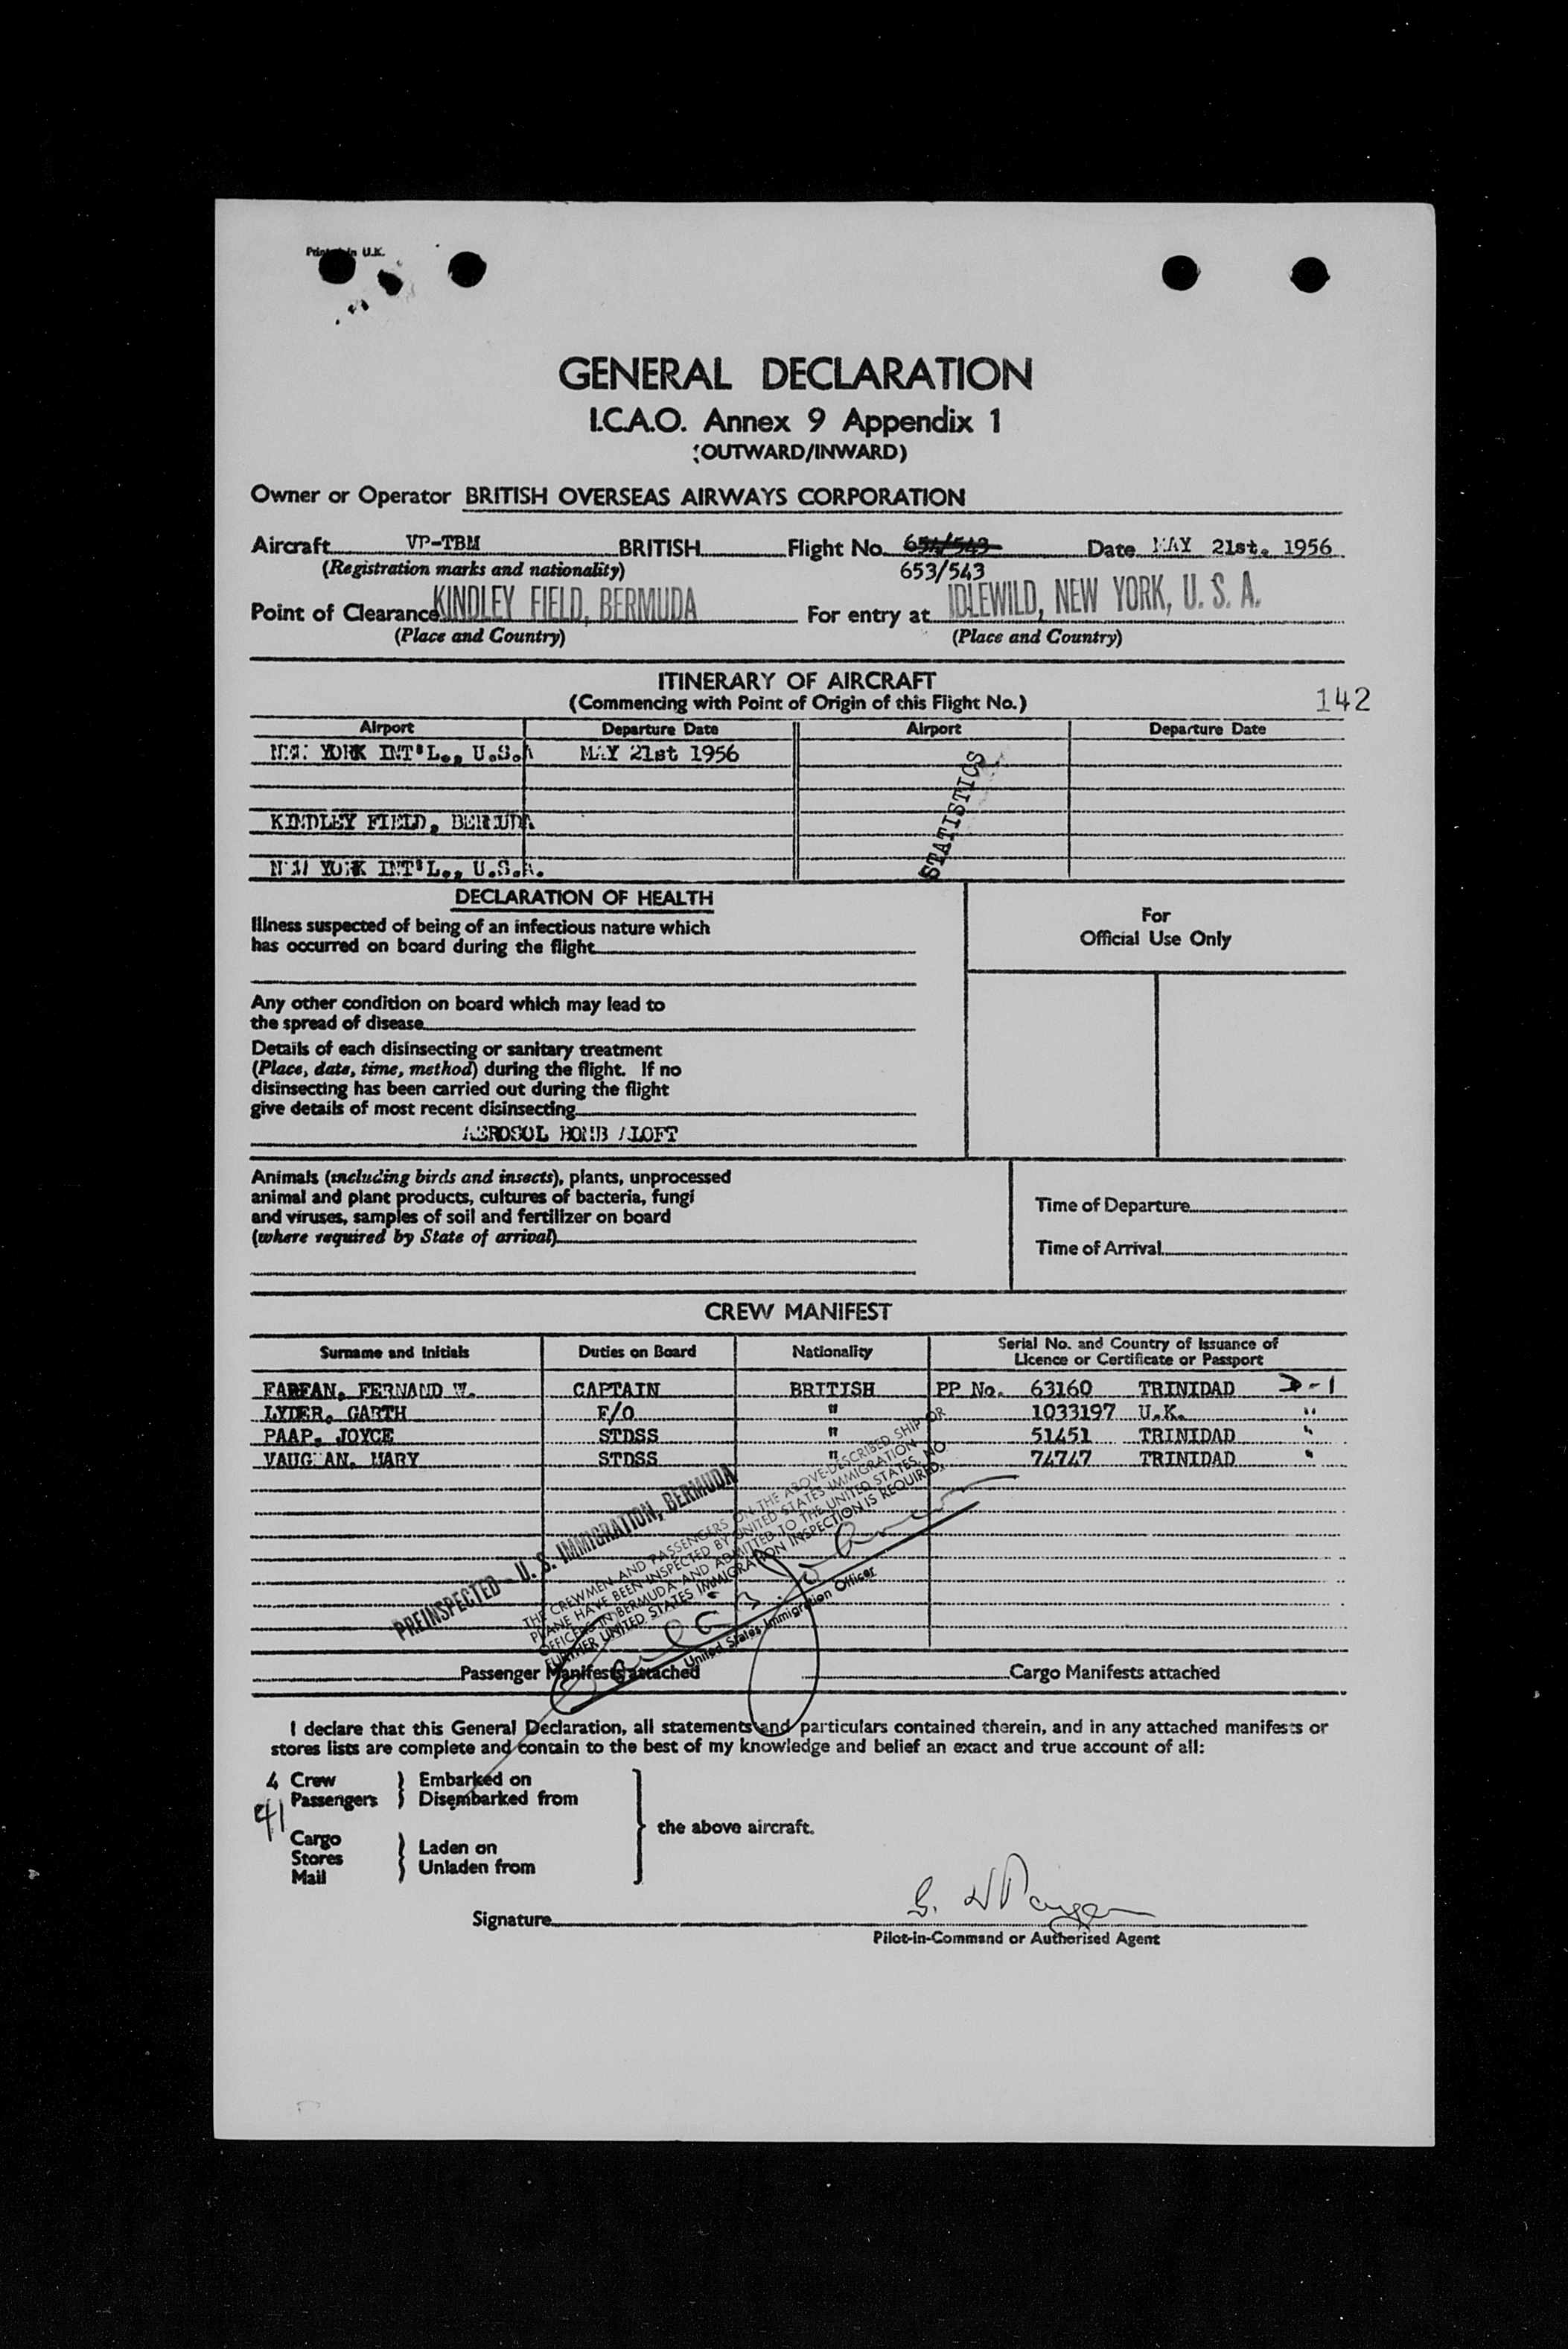 Printed in U.K.
GENERAL DECLARATION
I.C.A.O. Annex 9 Appendix 1
(OUTWARD/INWARD)
Owner or Operator BRITISH OVERSEAS AIRWAYS CORPORATION
Aircraft VP-TBM BRITISH Flight No. 654/543 Date MAY 21st. 1956
(Registration marks and nationality) 653/543
Point of Clearance KINDLEY FIELD, BERMUDA For entry at IDLEWILD, NEW YORK, U. S. A.
(Place and Country) (Place and Country)
ITINERARY OF AIRCRAFT
(Commencing with Point of Origin of this Flight No.) 142
Airport Departure Date Airport Departure Date
NEW YORK INT'L., U.S.A MAY 21st 1956
STATISTICS
KINDLEY FIELD, BERMUDA
NEW YORK INT'L., U.S.A.
DECLARATION OF HEALTH
For
Official Use Only
Illness suspected of being of an infectious nature which
has occurred on board during the flight
Any other condition on board which may lead to
the spread of disease
Details of each disinsecting or sanitary treatment
(Place, date, time, method) during the flight. If no
disinsecting has been carried out during the flight
give details of most recent disinsecting
AEROSOL BOMB ALOFT
Animals (including birds and insects), plants, unprocessed
animal and plant products, cultures of bacteria, fungi
and viruses, samples of soil and fertilizer on board
(where required by State of arrival)
Time of Departure
Time of Arrival
CREW MANIFEST
Surname and Initials Duties on Board Nationality Serial No. and Country of Issuance of
Licence or Certificate or Passport
FARFAN, FERNAND W. CAPTAIN BRITISH PP No. 63160 TRINIDAD D-1
LYDER, GARTH F/O " 1033197 U.K. "
PAAP, JOYCE STDSS " 51451 TRINIDAD "
VAUGHAN, MARY STDSS " 74747 TRINIDAD "
PREINSPECTED - U. S. IMMIGRATION, BERMUDA
THE CREWMEN AND PASSENGERS ON THE ABOVE-DESCRIBED SHIP OR
PLANE HAVE BEEN INSPECTED BY UNITED STATES IMMIGRATION
OFFICERS IN BERMUDA AND ADMITTED TO THE UNITED STATES. NO
FURTHER UNITED STATES IMMIGRATION INSPECTION IS REQUIRED.
United States Immigration Officer
Passenger Manifests attached Cargo Manifests attached
I declare that this General Declaration, all statements and particulars contained therein, and in any attached manifests or
stores lists are complete and contain to the best of my knowledge and belief an exact and true account of all:
4 Crew Embarked on
41 Passengers Disembarked from
the above aircraft.
Cargo Laden on
Stores Unladen from
Mail
Signature
Pilot-in-Command or Authorised Agent